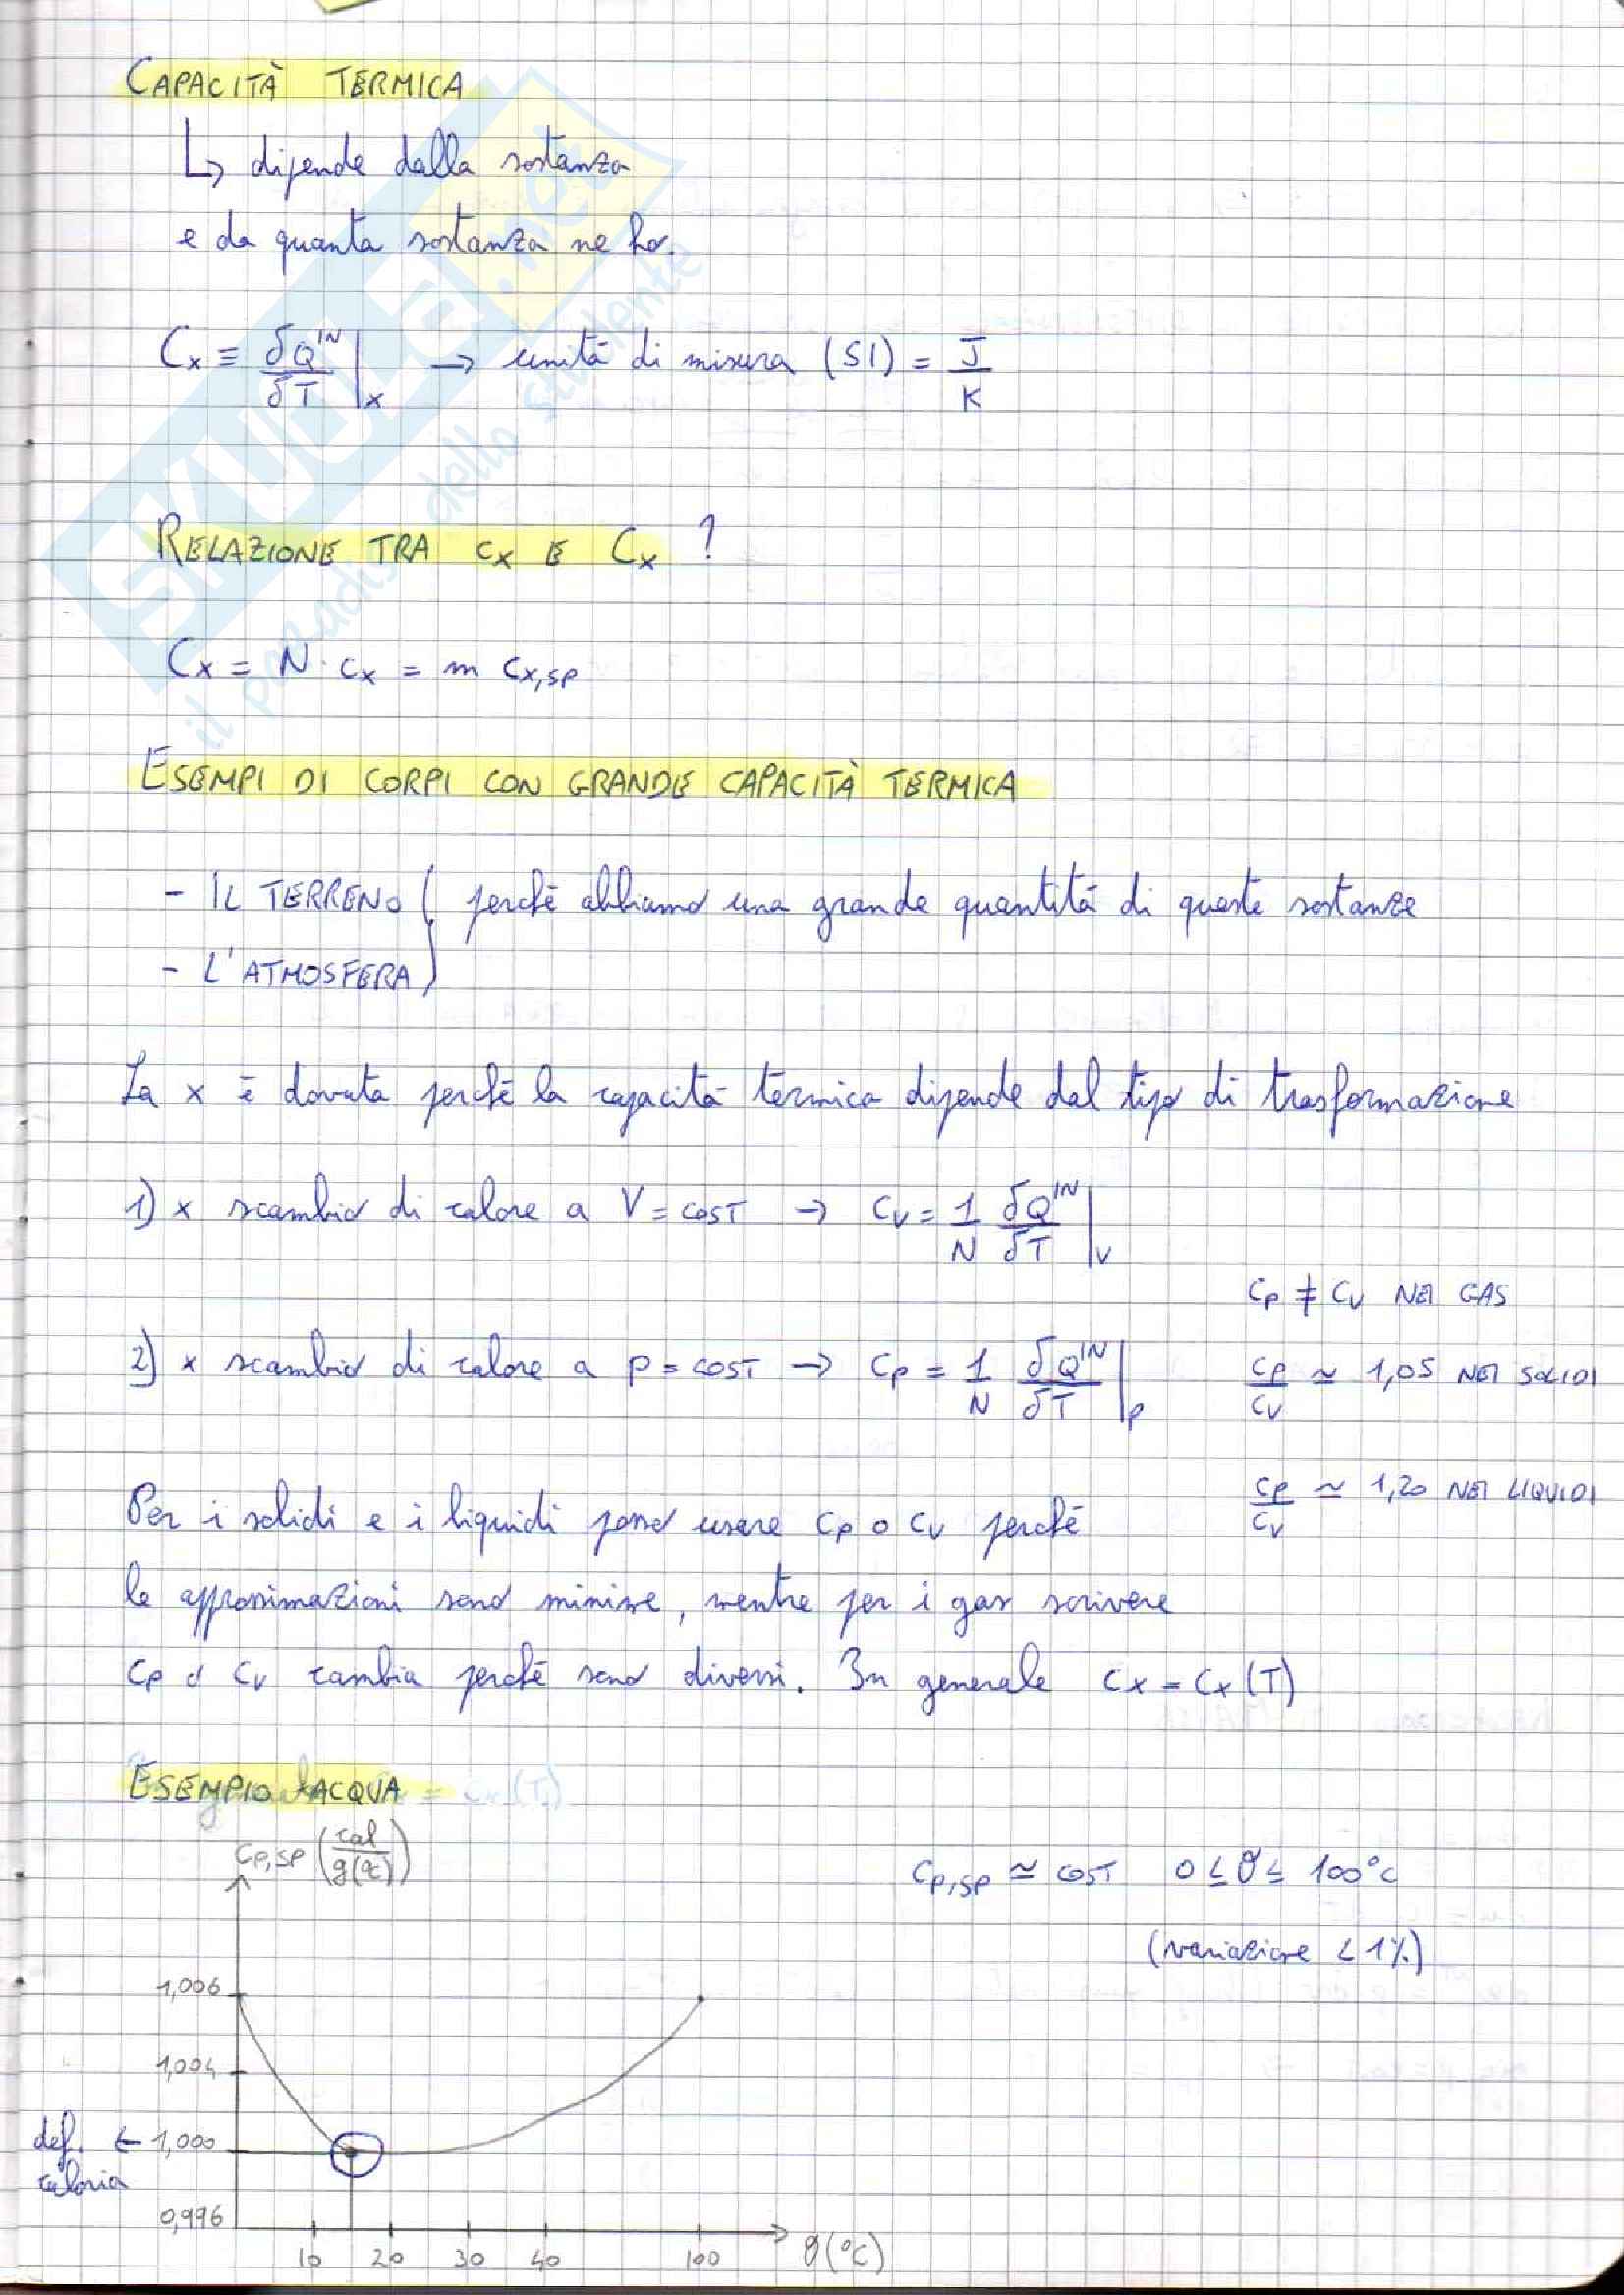 CAPACITÀ TERMICA
↳ dipende dalla sostanza
e da quanta sostanza ne ho.
Cx ≡ δQ^IN/δT |x → unità di misura (SI) = J/K
RELAZIONE TRA cx E Cx ?
Cx = N · cx = m cx,sp
ESEMPI DI CORPI CON GRANDE CAPACITÀ TERMICA
- IL TERRENO ( perché abbiamo una grande quantità di queste sostanze
- L'ATMOSFERA )
La x è dovuta perché la capacità termica dipende dal tipo di trasformazione
1) x scambio di calore a V = COST → cv = 1/N δQ^IN/δT |v
cp ≠ cv NEI GAS
2) x scambio di calore a p = COST → cp = 1/N δQ^IN/δT |p
cp/cv ≃ 1,05 NEI SOLIDI
cp/cv ≃ 1,20 NEI LIQUIDI
Per i solidi e i liquidi posso usare cp o cv perché
le approssimazioni sono minime, mentre per i gas scrivere
cp o cv cambia perché sono diversi. In generale cx = cx(T)
ESEMPIO ACQUA
= cx(T)
cp,sp (cal/g(°C))
cp,sp ≃ COST 0 ≤ ϑ ≤ 100°C
(variazione < 1%)
1,006
1,004
def. ← 1,000
caloria
0,996
10 20 30 40 100 ϑ(°C)
SKUOLA.net
il paradiso dello studente